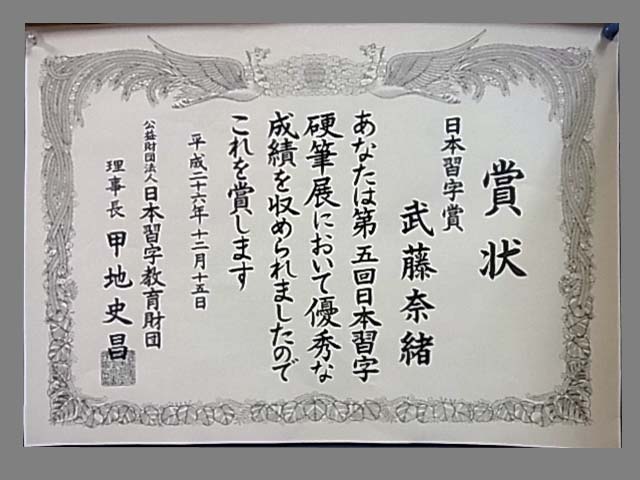 賞状
日本習字賞
武藤奈緒
あなたは第五回日本習字
硬筆展において優秀な
成績を収められましたので
これを賞します
平成二十六年十二月十五日
公益財団法人日本習字教育財団
理事長 甲地史昌